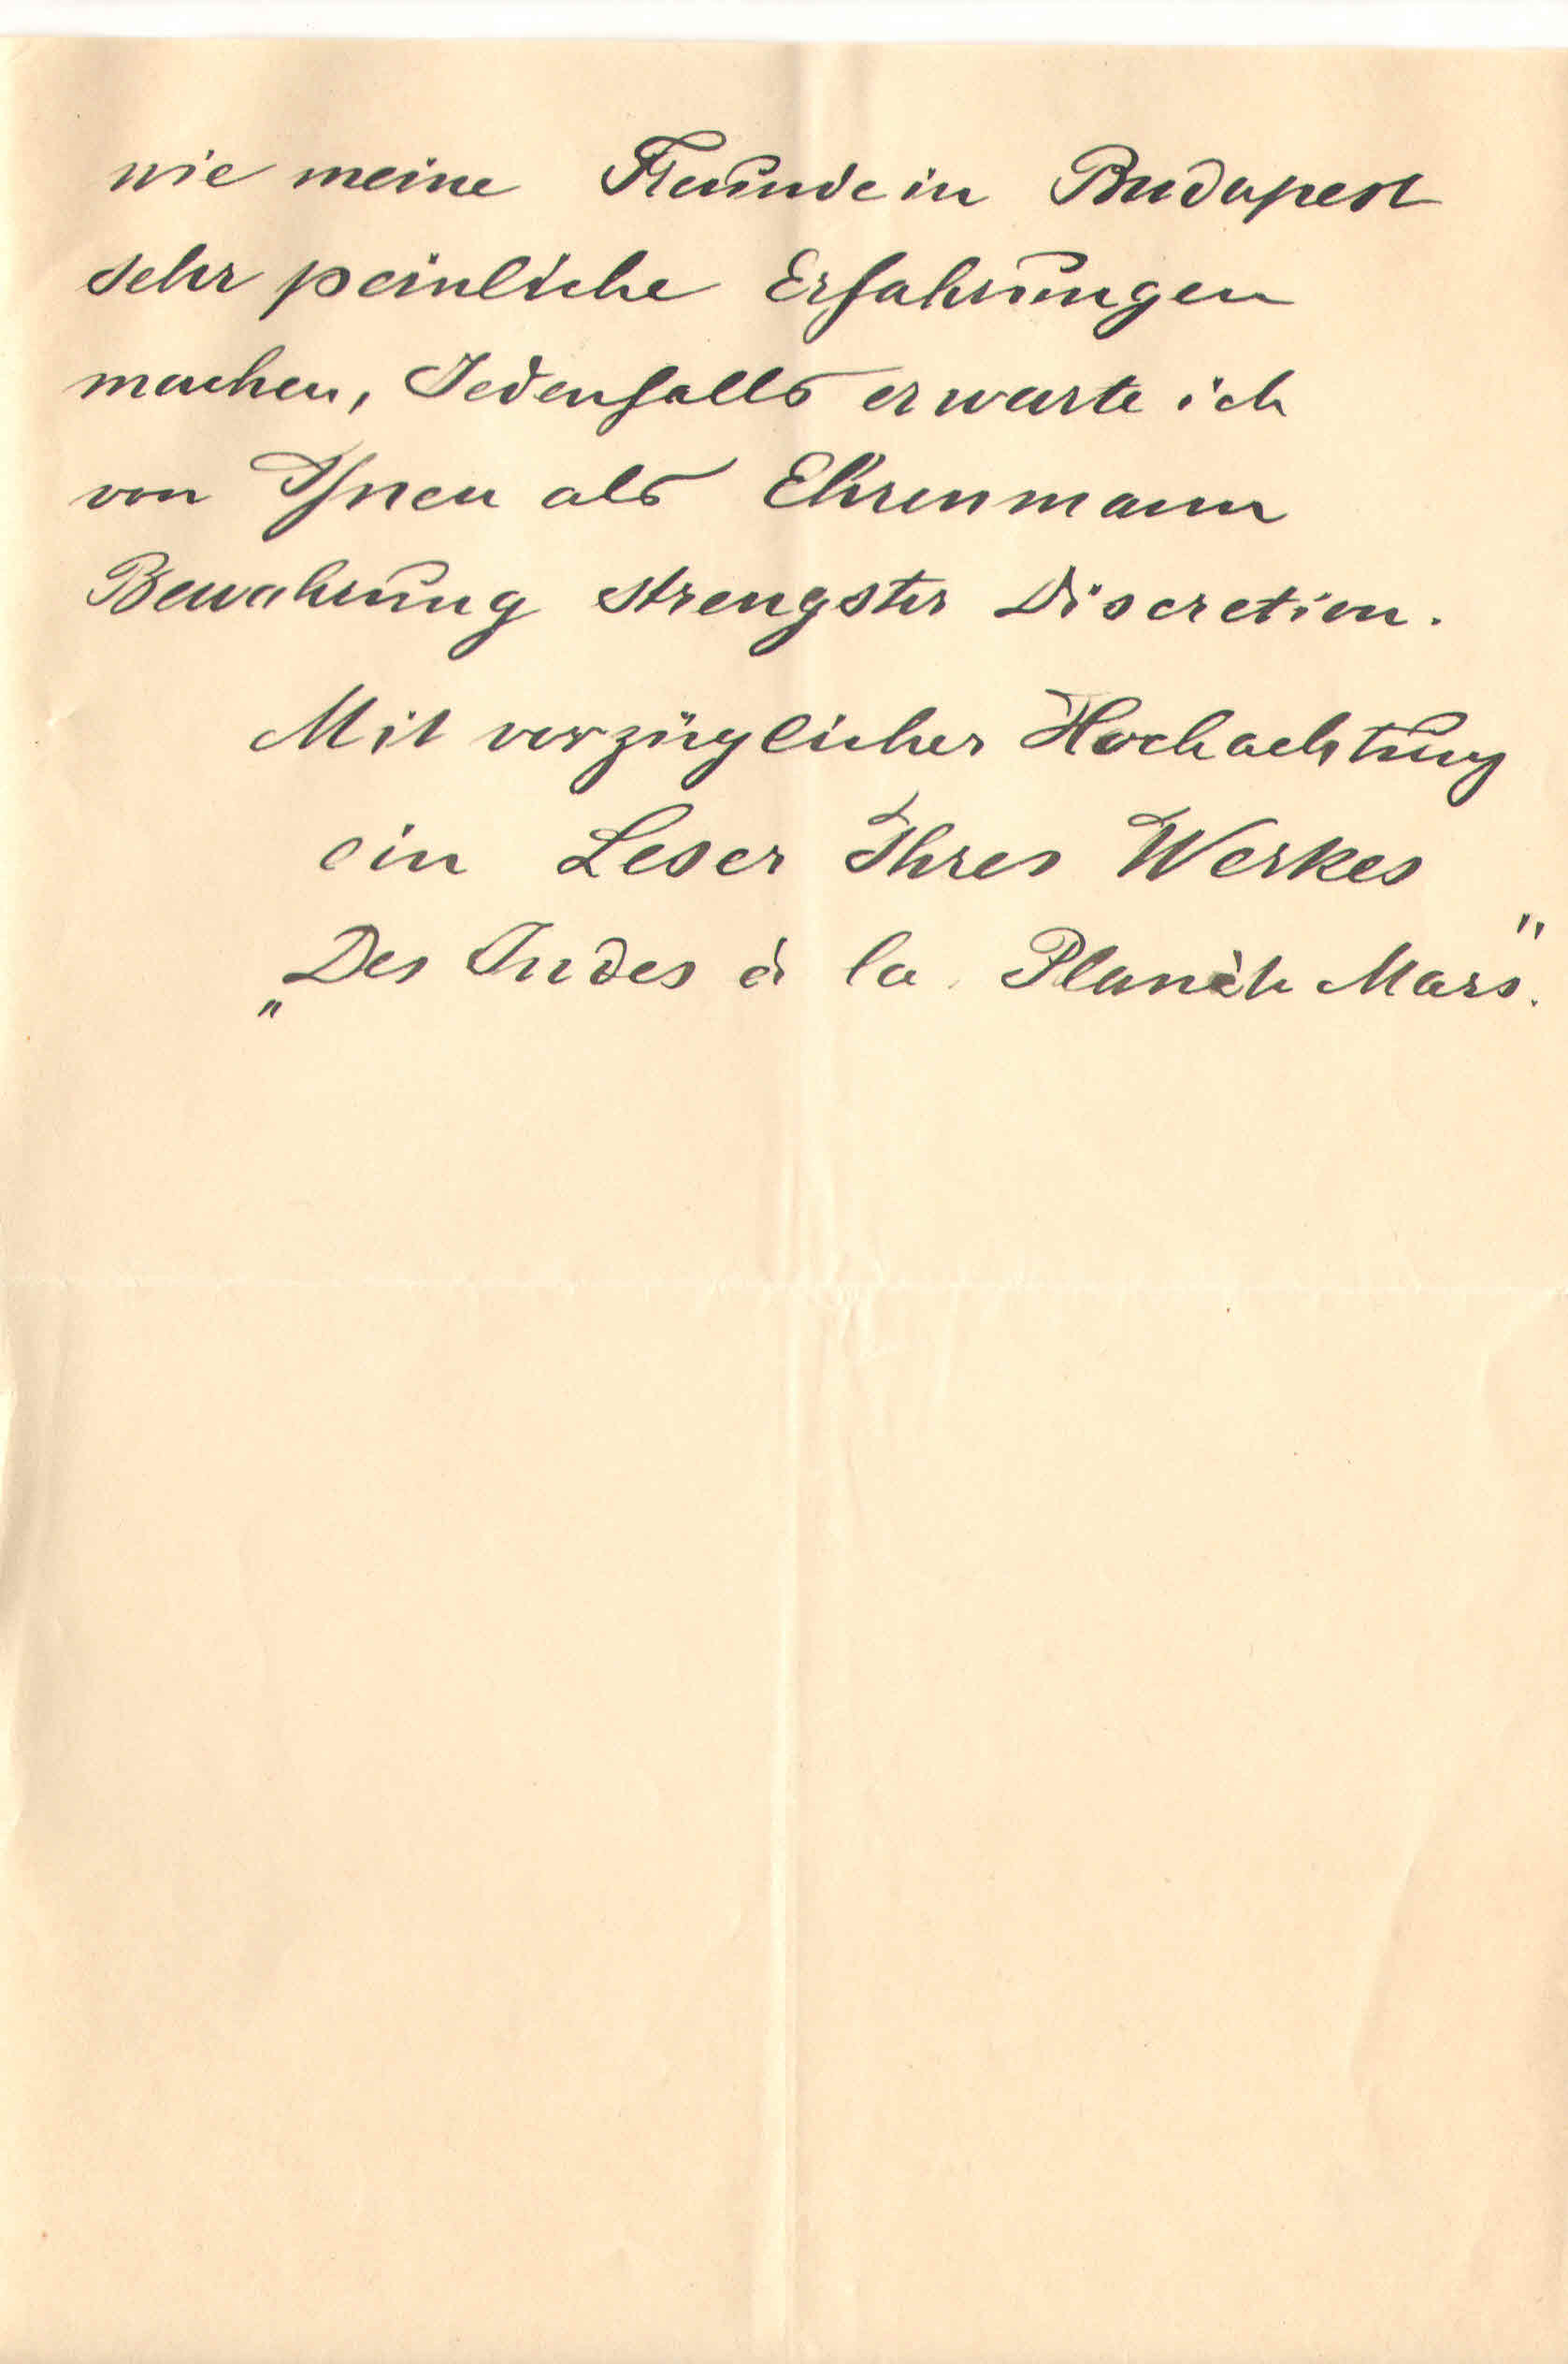 wie meine Freunde in Budapest
sehr peinliche Erfahrungen
machen, Jedenfalls erwarte ich
von Ihnen als Ehrenmann
Bewahrung strengster Discretion.
Mit vorzüglicher Hochachtung
ein Leser Ihres Werkes
„Des Indes à la Planète Mars".